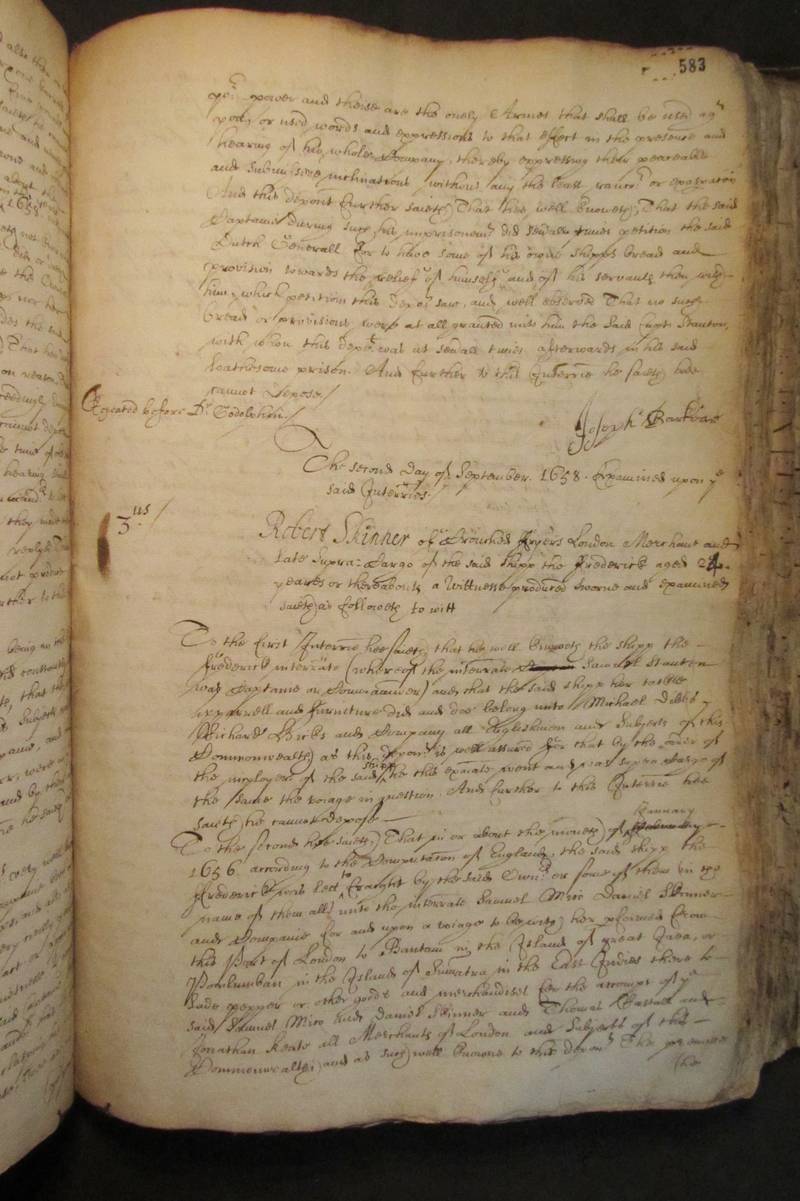 583
power and theise are the onely Armes that shall be used ag.t
you, or used words and expressions to that effect in the presence and
hearing of his whole Company, thereby expressing their peaceable
and submissive inclinations without any the least rancor or
And this depon.t further saieth, That hee well knoweth, That the said
Captaine during such his imprisonem.t did severall times petition the said
Dutch Generall for to have some of his owne shipps bread and
provision towards the relief of himself and of his servants then with
him, which petition this depo.t saw, and well observed That no such
bread or provisions were at all granted unto him the said Capt. Stanton,
with whom this depo.t was at severall times afterwards in his said
loathsome prison. And further to this Interrie he saieth hee
cannot depose./
Repeated before D.r Godolphin./
Joseph
The second day of September. 1658. Examined upon y.e
said Interries.
3.us/
Robert Skinner of Crouched Fryers London Merchant and
late Supra-Cargo of the said shipp the Frederick aged 24.
yeares or thereabouts a Wittnesse produced sworne and examined
saieth as followeth to witt
To the first Interrie hee saieth that he well knoweth the shipp the
Frederick interr.ate (whereof the interrate Samuel Stanton
was Captaine or Commaunder) and that the said shipp her tackle
apparrell and furniture did and doe belong unto Michael
Richard Bicks and Company all Englishmen and Subjects of this
Commonwealth, as this depon.t is well assured for that by the order of
the imployers of the said shipp he this examiate went and was supra Cargo of
the same the voiage in question. And further to this Interrie hee
saieth he cannot depose
To the second hee saieth, That in or about the moneth of January
1656. according to the Computacon of England, the said shipp the
Frederick was lett to fraight by the said Own.rs or some of them in the
name of them all, unto the interrate Samuel Mico Daniel Skinner
and Companie for and upon a voiage to be with her p.formed from
this Port of London to Bantam in the Island of great Java, or
in the Island of Sumatra in the East Indies there to
lade pepper or other goods and merchandises for the accompt of y.e
said Samuel Mico and Daniel Skinner and Thomas and
Jonathan Keate all Merchants of London and Subjects of this
Commonwealth, and as such well knowne to this depon.t The premisses
he